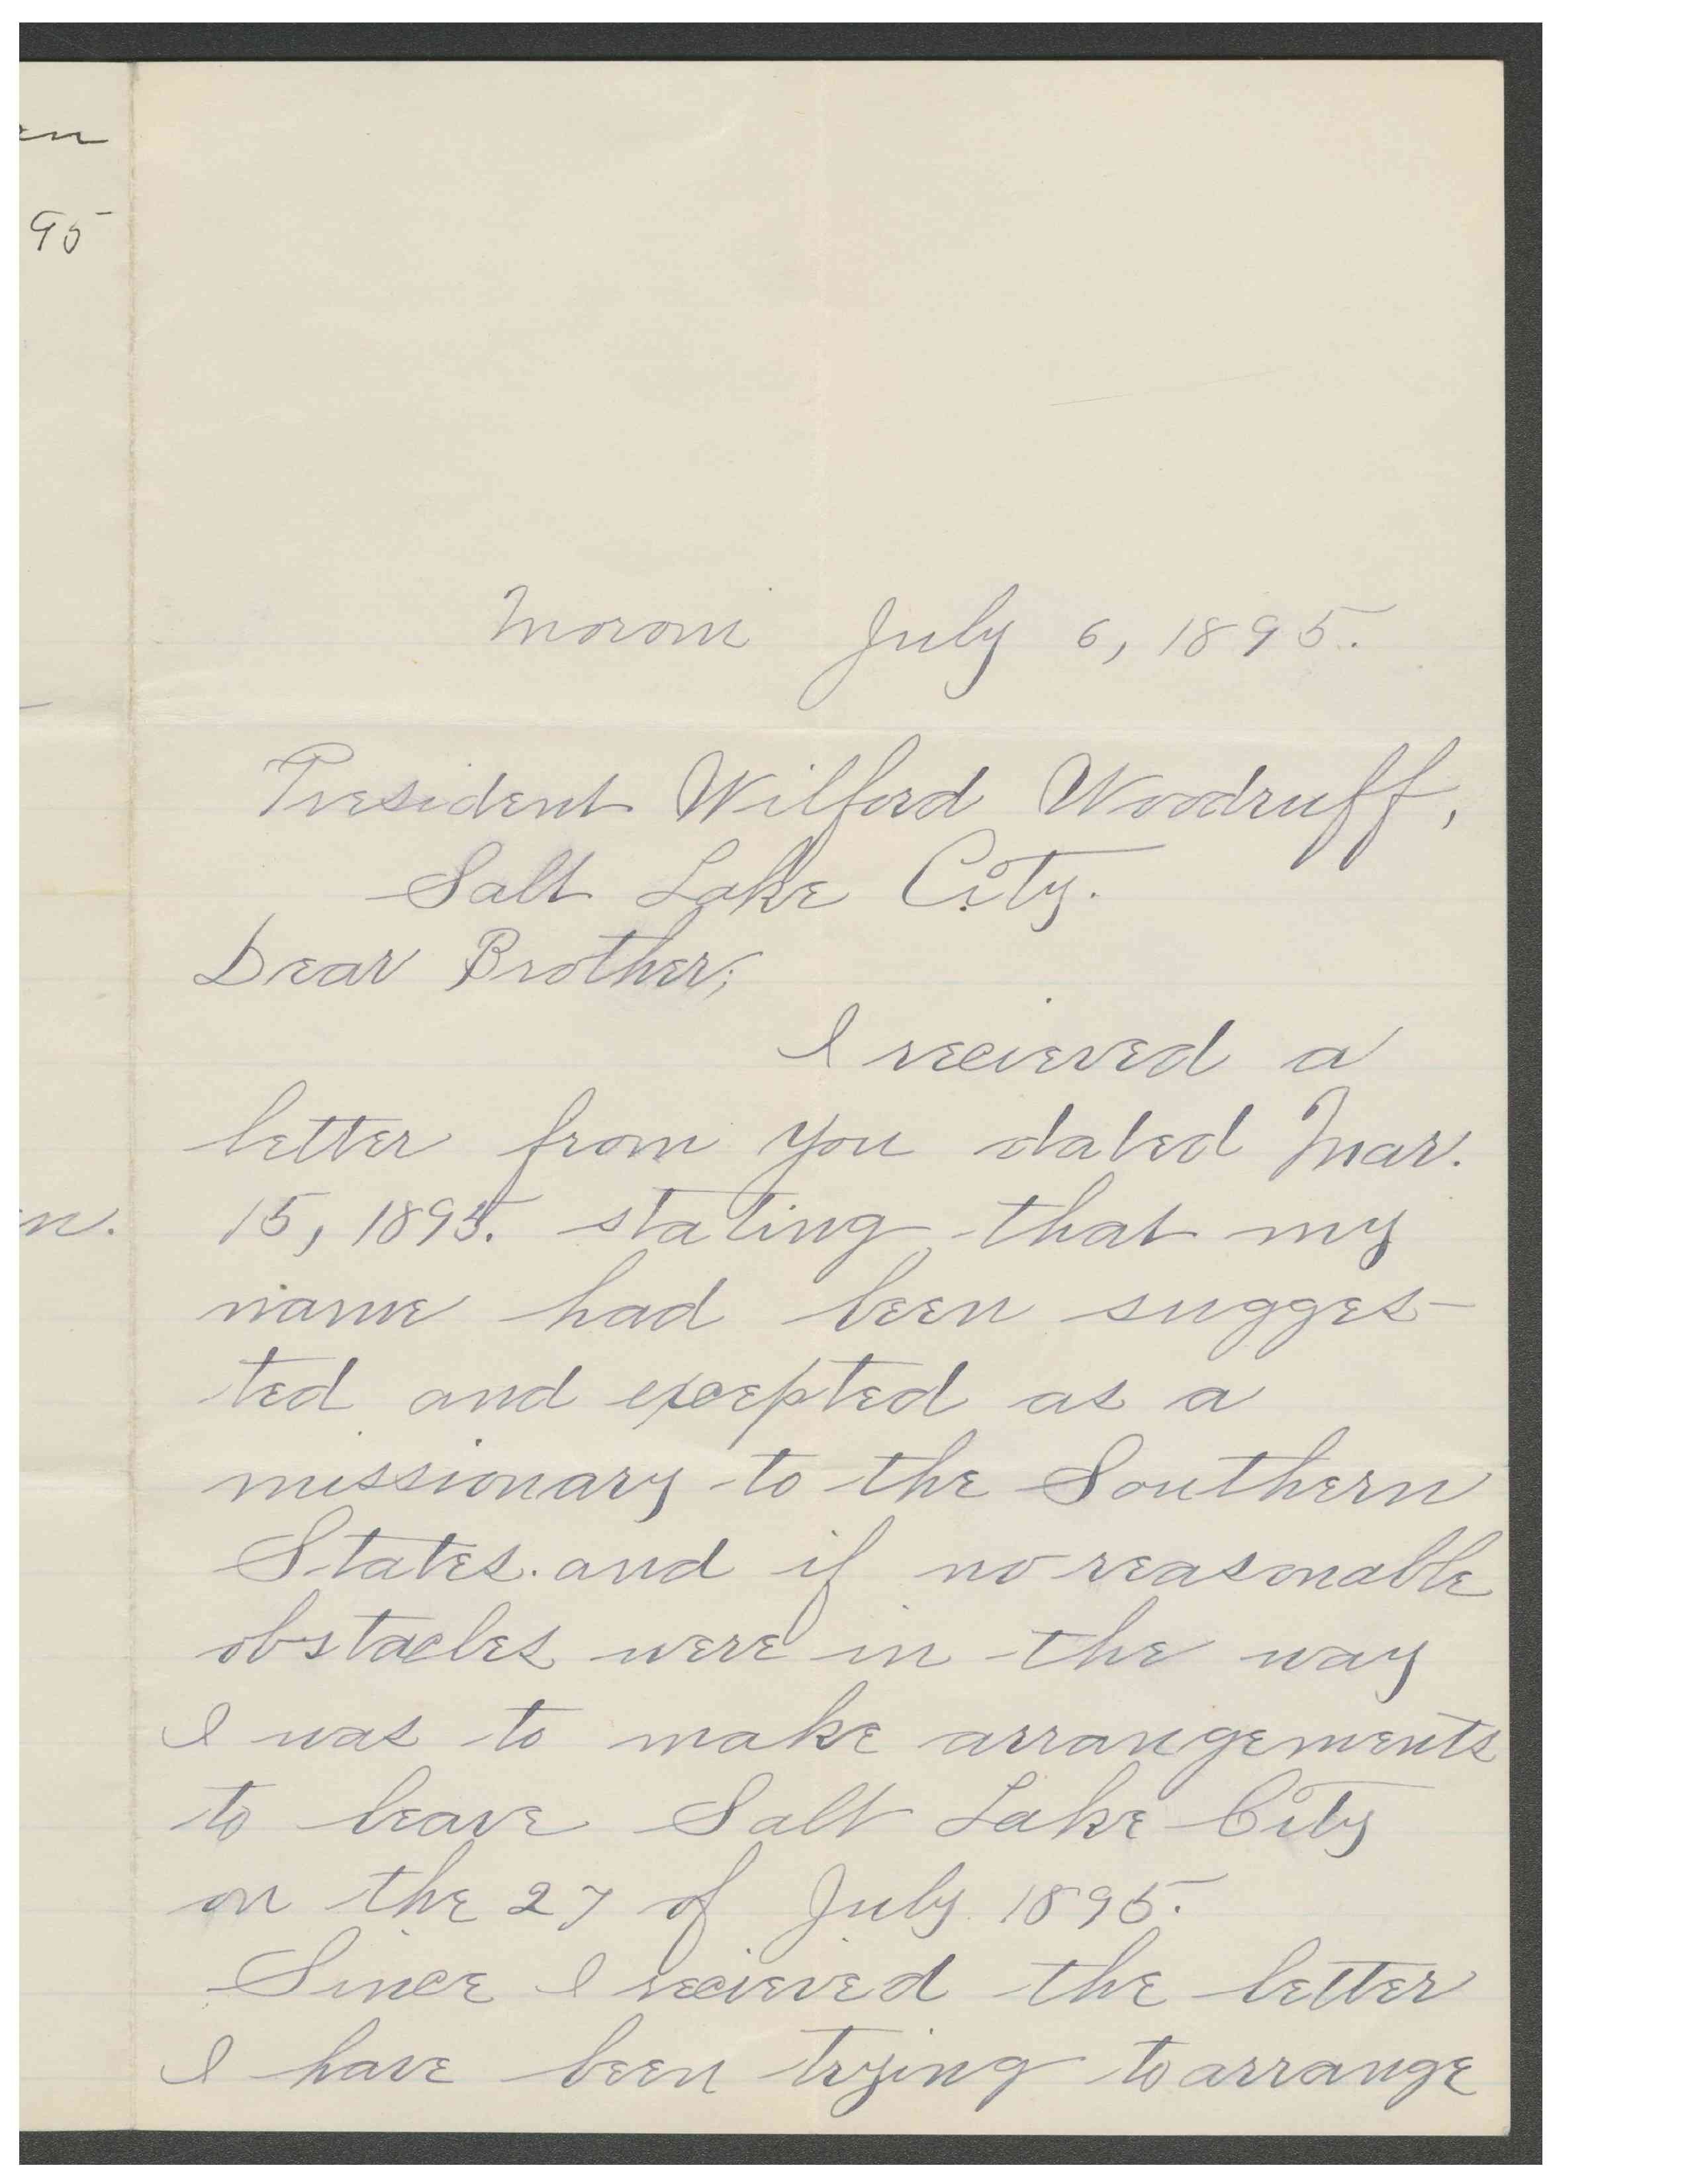 en
95
n.
Moroni July 6, 1895.
President Wilford Woodruff,
Salt Lake City.
Dear Brother;
I recieved a
letter from you dated Mar.
15, 1895. stating that my
name had been sugges-
ted and excepted as a
missionary to the Southern
States. and if no reasonable
obstacles were in the way
I was to make arrangements
to leave Salt Lake City
on the 27 of July 1895.
Since I recieved the letter
I have been trying to arrange